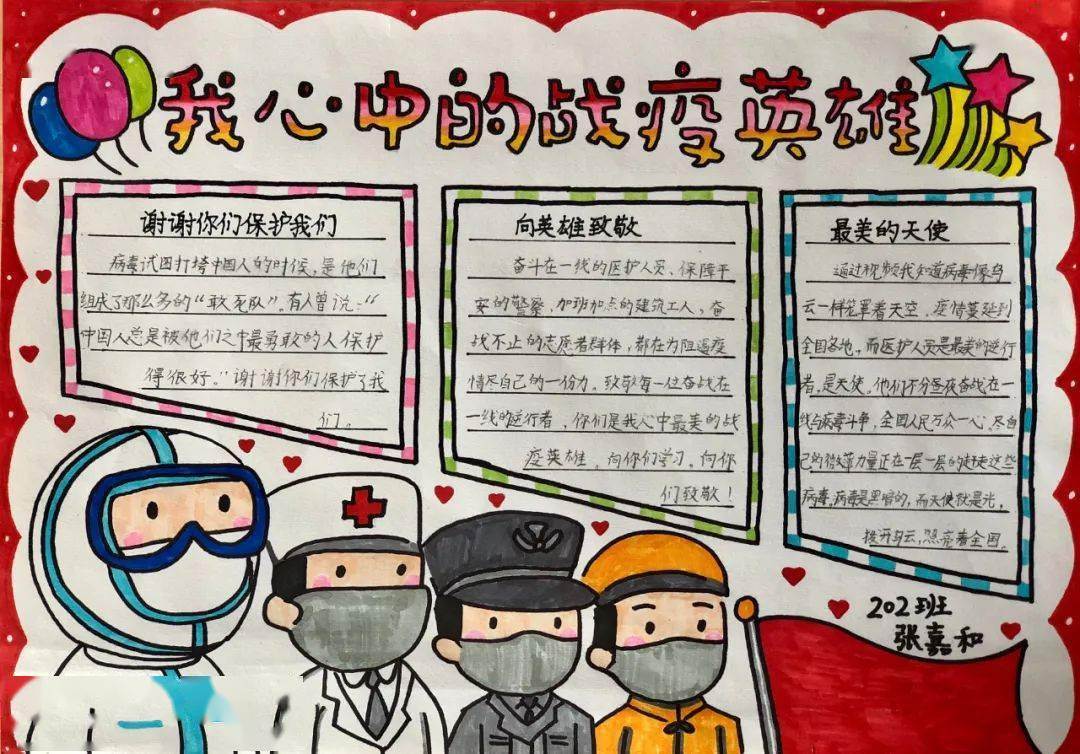 我心中的战疫英雄
谢谢你们保护我们
病毒试图打垮中国人的时候,是他们
组成了那么多的“敢死队”。有人曾说:“
中国人总是被他们之中最勇敢的人保护
得很好。”谢谢你们保护了我
们。
向英雄致敬
奋斗在一线的医护人员、保障平
安的警察、加班加点的建筑工人,奋
战不止的志愿者群体,都在为阻遏疫
情尽自己的一份力。致敬每一位奋战在
一线的逆行者,你们是我心中最美的战
疫英雄。向你们学习。向你
们致敬!
最美的天使
通过视频我知道病毒像乌
云一样笼罩着天空,疫情蔓延到
全国各地。而医护人员是最美的逆行
者,是天使。他们不分昼夜奋战在一
线与病毒斗争,全国人民万众一心、尽自
己的微薄力量正在一层一层的 这些
病毒。病毒是黑暗的,而天使就是光。
拨开乌云,照亮着全国。
202班
张嘉和